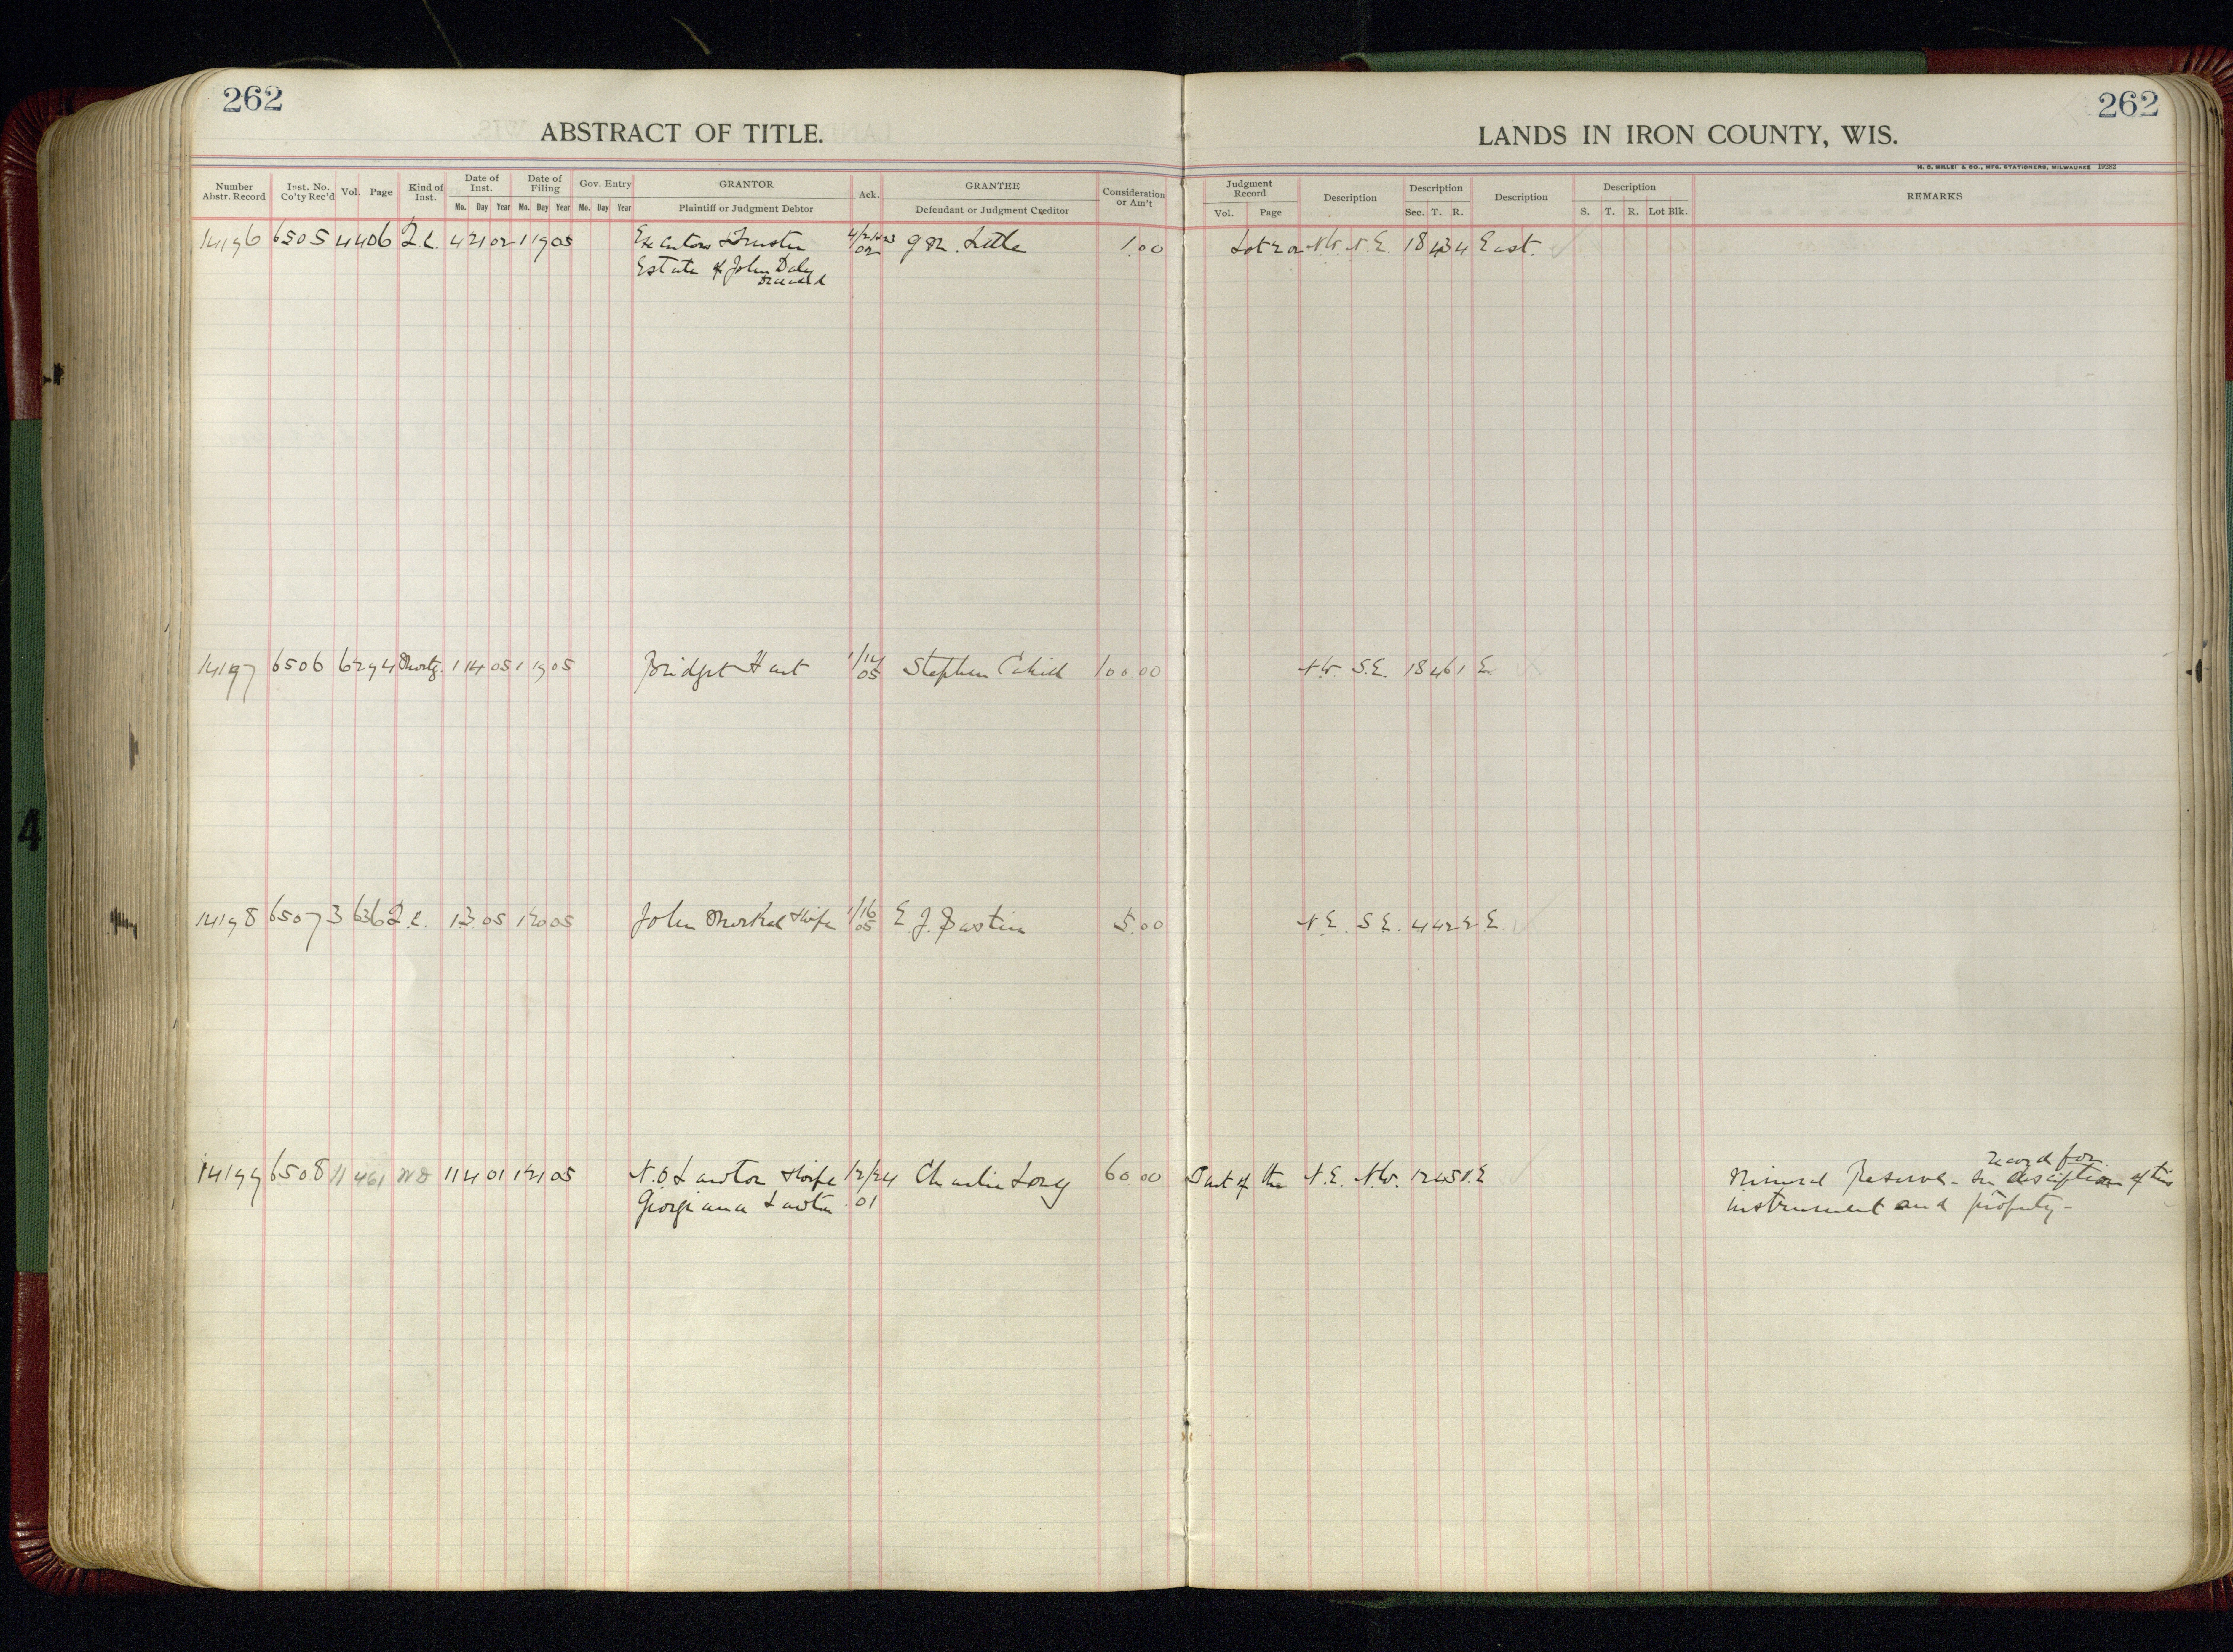 262
ABSTRACT OF TITLE.
Number Abstr. Record
Inst. No. Co'ty Rec'd
Vol.
Page
Kind of Inst.
Date of Inst.
Mo. Day Year
Date of Filing
Mo. Day Year
Gov. Entry
Mo. Day Year
GRANTOR
Plaintiff or Judgment Debtor
Ack.
GRANTEE
Defendant or Judgment Creditor
Consideration or Am't
262
LANDS IN IRON COUNTY, WIS.
H. C. MILLER & CO., MFG. STATIONERS, MILWAUKEE 19282
Judgment Record
Vol. Page
Description
Description
Sec. T. R.
Description
Description
S. T. R. Lot Blk.
REMARKS
14196 6505 4 406 Q.C. 4 21 02 1 19 05 Executors & Trustee 1.00 Lot 2 or N.W. N.E. 18 43 4 East.
Estate of John Daly
Deceased
14197 6506 6 294 Mortg. 1 14 05 1 19 05 Bridget Hart 1/14 05 Stephen Cahill 100 00 N.W. S.E. 18 46 1 E.
14198 6507 3 636 Q.C. 1 3 05 1 20 05 John & wife 1/16 05 E. J. 5.00 N.E. S.E. 4 42 2 E.
14199 6508 11 461 WD 11 4 01 1 21 05 N.O. Lawton & wife 12/24 Charlie Long 60.00 Part of the N.E. N.W. 12 45 1 E
Georgiana Lawton 01
record for
Mineral Reserve - See description of this
instrument and property -
4